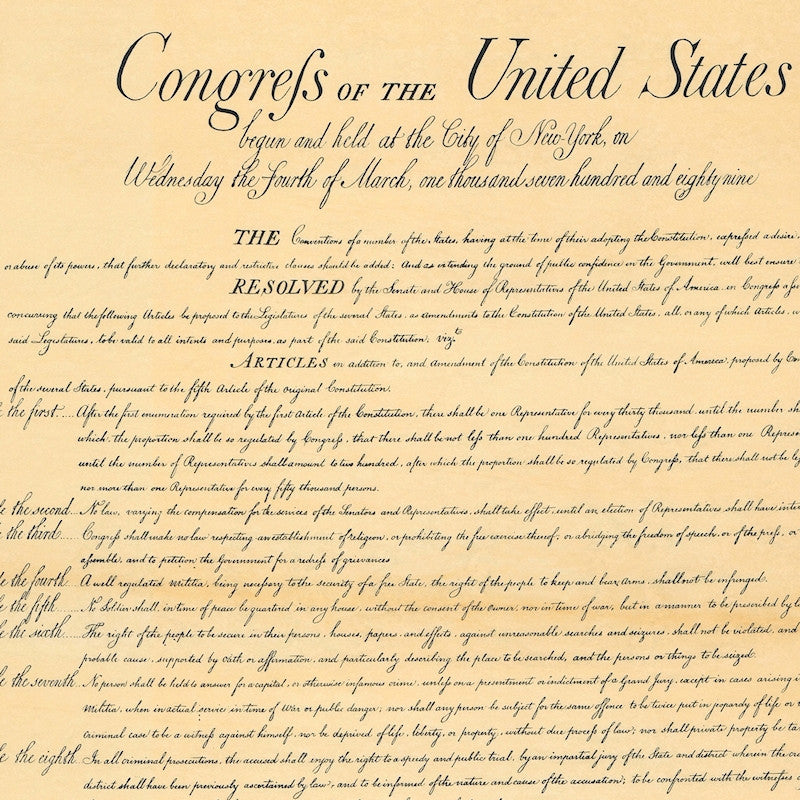 Congreſs OF THE United States
begun and held at the City of New-York, on
Wednesday the Fourth of March, one thousand seven hundred and eighty nine
THE Conventions of a number of the States, having at the time of their adopting the Constitution, expressed a desire,
or abuse of its powers, that further declaratory and restrictive clauses should be added: And as extending the ground of public confidence in the Government, will best ensure
RESOLVED by the Senate and House of Representatives of the United States of America, in Congress
concurring that the following Articles be proposed to the Legislatures of the several States, as amendments to the Constitution of the United States, all, or any of which Articles,
said Legislatures, to be valid to all intents and purposes, as part of the said Constitution, vizt
ARTICLES in addition to, and Amendment of the Constitution of the United States of America, proposed by
of the several States, pursuant to the fifth Article of the original Constitution.
the first.... After the first enumeration required by the first Article of the Constitution, there shall be one Representative for every thirty thousand, until the number
which, the proportion shall be so regulated by Congreſs, that there shall be not leſs than one hundred Representatives, nor leſs than one
until the number of Representatives shall amount to two hundred, after which the proportion shall be so regulated by Congreſs, that there shall not be
nor more than one Representative for every fifty thousand persons.
the second... No law, varying the compensation for the services of the Senators and Representatives, shall take effect, until an election of Representatives shall have
the third...... Congreſs shall make no law respecting an establishment of religion, or prohibiting the free exercise thereof, or abridging the freedom of speech, or of the preſs, or
aſsemble, and to petition the Government for a redreſs of grievances
the fourth... A well regulated Militia, being neceſsary to the security of a free State, the right of the people to keep and bear Arms, shall not be infringed.
the fifth...... No Soldier shall, in time of peace be quartered in any house, without the consent of the owner, nor in time of war, but in a manner to be prescribed by
the sixth..... The right of the people to be secure in their persons, houses, papers, and effects, against unreasonable searches and seizures, shall not be violated, and
probable cause, supported by oath or affirmation, and particularly describing the place to be searched, and the persons or things to be seized.
the seventh.. No person shall be held to answer for a capital, or otherwise infamous crime, unleſs on a presentment or indictment of a Grand Jury, except in cases arising
Militia, when in actual service in time of War or public danger; nor shall any person be subject for the same offence to be twice put in jeopardy of life or
criminal case to be a witneſs against himself, nor be deprived of life, liberty, or property, without due proceſs of law; nor shall private property be
the eighth.. In all criminal prosecutions, the accused shall enjoy the right to a speedy and public trial, by an impartial jury of the State and district wherein the
district shall have been previously ascertained by law, and to be informed of the nature and cause of the accusation; to be confronted with the witneſses